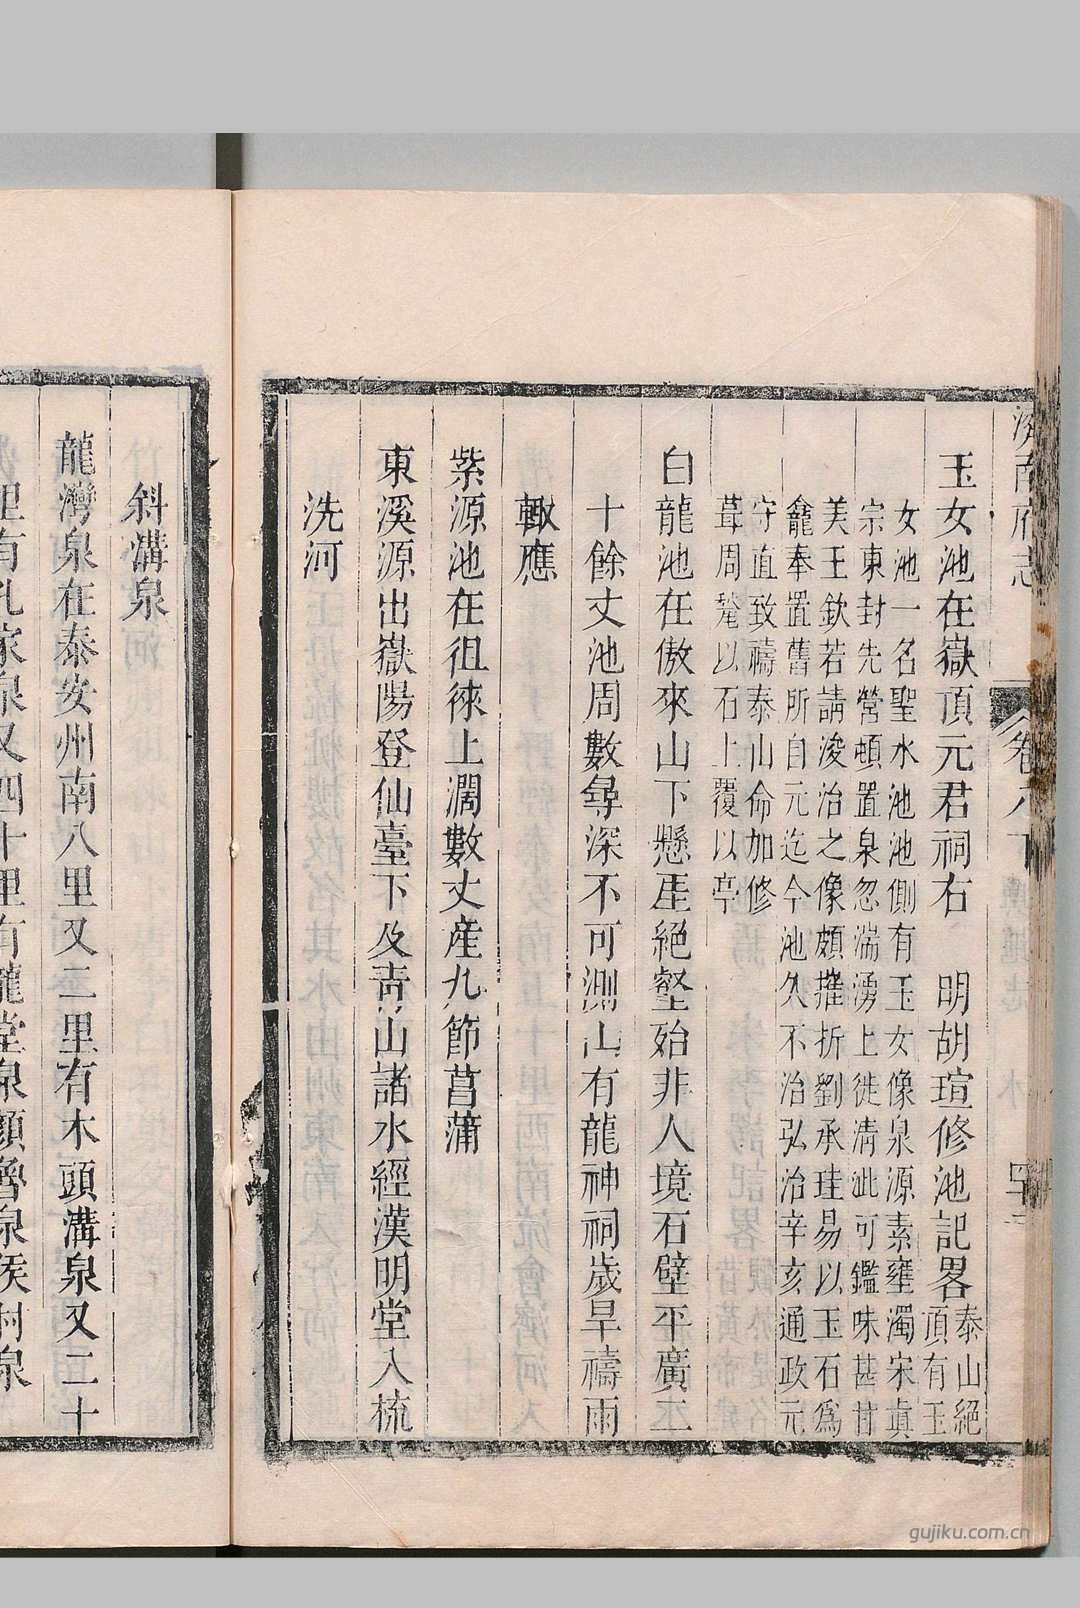 濟南府志
卷八下
玉女池在嶽頂元君祠右 明胡瑄修池記畧泰山絕
頂有玉
女池一名聖水池池側有玉女像泉源素壅濁宋真
宗東封先營頓置泉忽湍湧上徙清泚可鑑味甚甘
美王欽若請浚治之像頗摧折劉承珪易以玉石爲
龕奉置舊所自元迄今池久不治弘治辛亥通政元
守直致禱泰山命加修
葺周甃以石上覆以亭
白龍池在傲來山下懸崖絕壑始非人境石壁平廣二
十餘丈池周數尋深不可測山有龍神祠歲旱禱雨
輙應
紫源池在徂徠上濶數丈產九節菖蒲
東溪源出嶽陽登仙臺下及青山諸水經漢明堂入梳
洗河
斜溝泉
龍灣泉在泰安州南八里又二里有木頭溝泉又二十
里有孔家泉又四十里有龍堂泉顏魯泉侯村泉
gujiku.com.cn